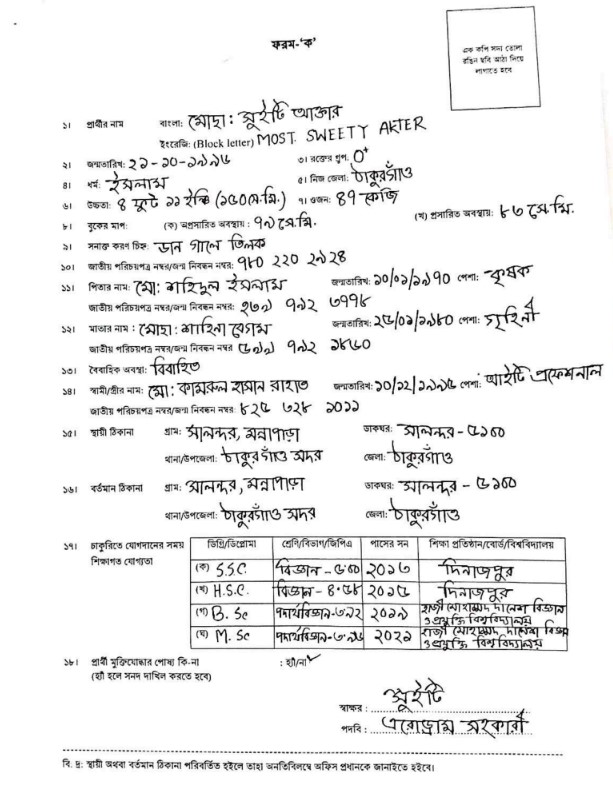 ফরম-'ক'
এক কপি সদ্য তোলা
রঙিন ছবি আঠা দিয়ে
লাগাতে হবে
১। প্রার্থীর নাম বাংলা: মোছা: সুইটি আক্তার
ইংরেজি: (Block letter) MOST. SWEETY AKTER
২। জন্মতারিখ: ২১-১০-১৯৯৬ ৩। রক্তের গ্রুপ: O+
৪। ধর্ম: ইসলাম ৫। নিজ জেলা: ঠাকুরগাঁও
৬। উচ্চতা: ৪ ফুট ১১ ইঞ্চি (১৫০সে.মি.) ৭। ওজন: ৪৭ কেজি
৮। বুকের মাপ: (ক) অপ্রসারিত অবস্থায়: ৭৯ সে.মি. (খ) প্রসারিত অবস্থায়: ৮৩ সে.মি.
৯। সনাক্ত করণ চিহ্ন: ডান গালে তিলক
১০। জাতীয় পরিচয়পত্র নম্বর/জন্ম নিবন্ধন নম্বর: ৭৮০ ২২০ ২৯২৪
১১। পিতার নাম: মো: শহিদুল ইসলাম জন্মতারিখ: ১০/০১/১৯৭০ পেশা: কৃষক
জাতীয় পরিচয়পত্র নম্বর/জন্ম নিবন্ধন নম্বর: ৭৯২
১২। মাতার নাম : মোছা: শাহিনা বেগম জন্মতারিখ: ২৫/০১/১৯৮০ পেশা: গৃহিনী
জাতীয় পরিচয়পত্র নম্বর/জন্ম নিবন্ধন নম্বর ৫৯৯৯ ৭৯২ ১৮৬০
১৩। বৈবাহিক অবস্থা: বিবাহিত
১৪। স্বামী/স্ত্রীর নাম: মো: কামরুল হাসান রাহাত জন্মতারিখ: ১০/১২/১৯৯৫ পেশা: আইটি প্রফেশনাল
জাতীয় পরিচয়পত্র নম্বর/জন্ম নিবন্ধন নম্বর: ৮২৫ ৬২৮ ১০১১
১৫। স্থায়ী ঠিকানা গ্রাম: সালন্দর, মন্নাপাড়া ডাকঘর: সালন্দর - ৫১০০
থানা/উপজেলা: ঠাকুরগাঁও সদর জেলা: ঠাকুরগাঁও
১৬। বর্তমান ঠিকানা গ্রাম: সালন্দর, মন্নাপাড়া ডাকঘর: সালন্দর - ৫১০০
থানা/উপজেলা: ঠাকুরগাঁও সদর জেলা: ঠাকুরগাঁও
১৭। চাকুরিতে যোগদানের সময় শিক্ষাগত যোগ্যতা
ডিগ্রি/ডিপ্লোমা শ্রেণি/বিভাগ/জিপিএ পাসের সন শিক্ষা প্রতিষ্ঠান/বোর্ড/বিশ্ববিদ্যালয়
(ক) S.S.C. বিজ্ঞান - ৫.০০ ২০১৩ দিনাজপুর
(খ) H.S.C. বিজ্ঞান - ৪.৫৮ ২০১৫ দিনাজপুর
(গ) B. Sc পদার্থবিজ্ঞান-৩.৭২ ২০১৯ হাজী মোহাম্মদ দানেশ বিজ্ঞান ও প্রযুক্তি বিশ্ববিদ্যালয়
(ঘ) M. Sc পদার্থবিজ্ঞান-৩.৯৬ ২০২১ হাজী মোহাম্মদ দানেশ বিজ্ঞান ও প্রযুক্তি বিশ্ববিদ্যালয়
১৮। প্রার্থী মুক্তিযোদ্ধার পোষ্য কি-না : হ্যাঁ/না ✓
(হ্যাঁ হলে সনদ দাখিল করতে হবে)
স্বাক্ষর : সুইটি
পদবি : এরোড্রাম সহকারী
বি. দ্র: স্থায়ী অথবা বর্তমান ঠিকানা পরিবর্তিত হইলে তাহা অনতিবিলম্বে অফিস প্রধানকে জানাইতে হইবে।